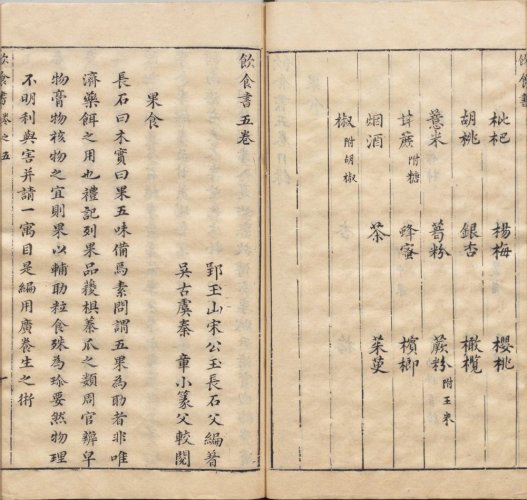 飲食書
枇杷 楊梅 櫻桃
胡桃 銀杏 橄欖
薏米 葛粉 蕨粉 附玉米
甘蔗 附糖 蜂蜜 檳榔
烟酒 茶 茱萸
椒 附胡椒
飲食書五卷
郢玉山宋公玉長石父編著
吳古虞秦 章小篆父較閱
果食
長石曰木實曰果五味備焉素問謂五果為助者非唯
濟藥餌之用也禮記列果品蔆椇蓁瓜之類周官辨阜
物膏物核物之宜則果以輔助粒食殊為珍要然物理
不明利與害并請一寓目是編用廣養生之術
飲食書卷之五 一